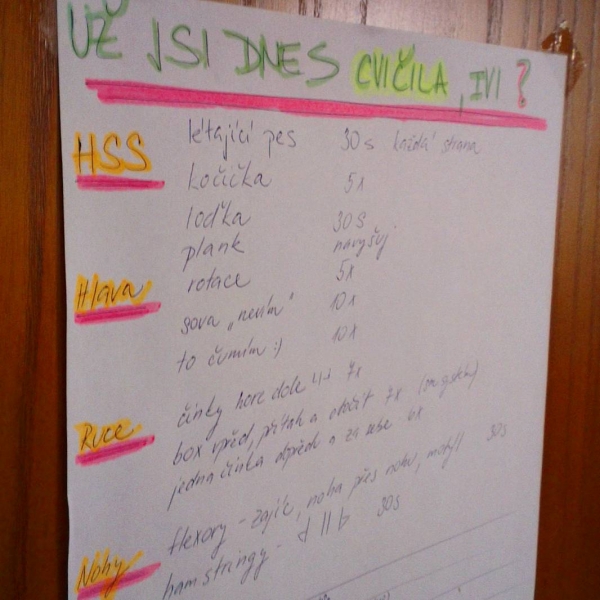 UŽ JSI DNES CVIČILA, IVI?
HSS létající pes 30s každá strana
kočička 5x
loďka 30s
plank navyšuj
Hlava rotace 5x
sova „nevím" 10x
to čumím :) 10x
Ruce činky hore dole 7x
box vpřed, přítah a otočit 7x
jedna činka dopředu a za sebe 6x
Nohy flexory - zajíc, noha přes nohu, motýl 30s
hamstringy - 30s